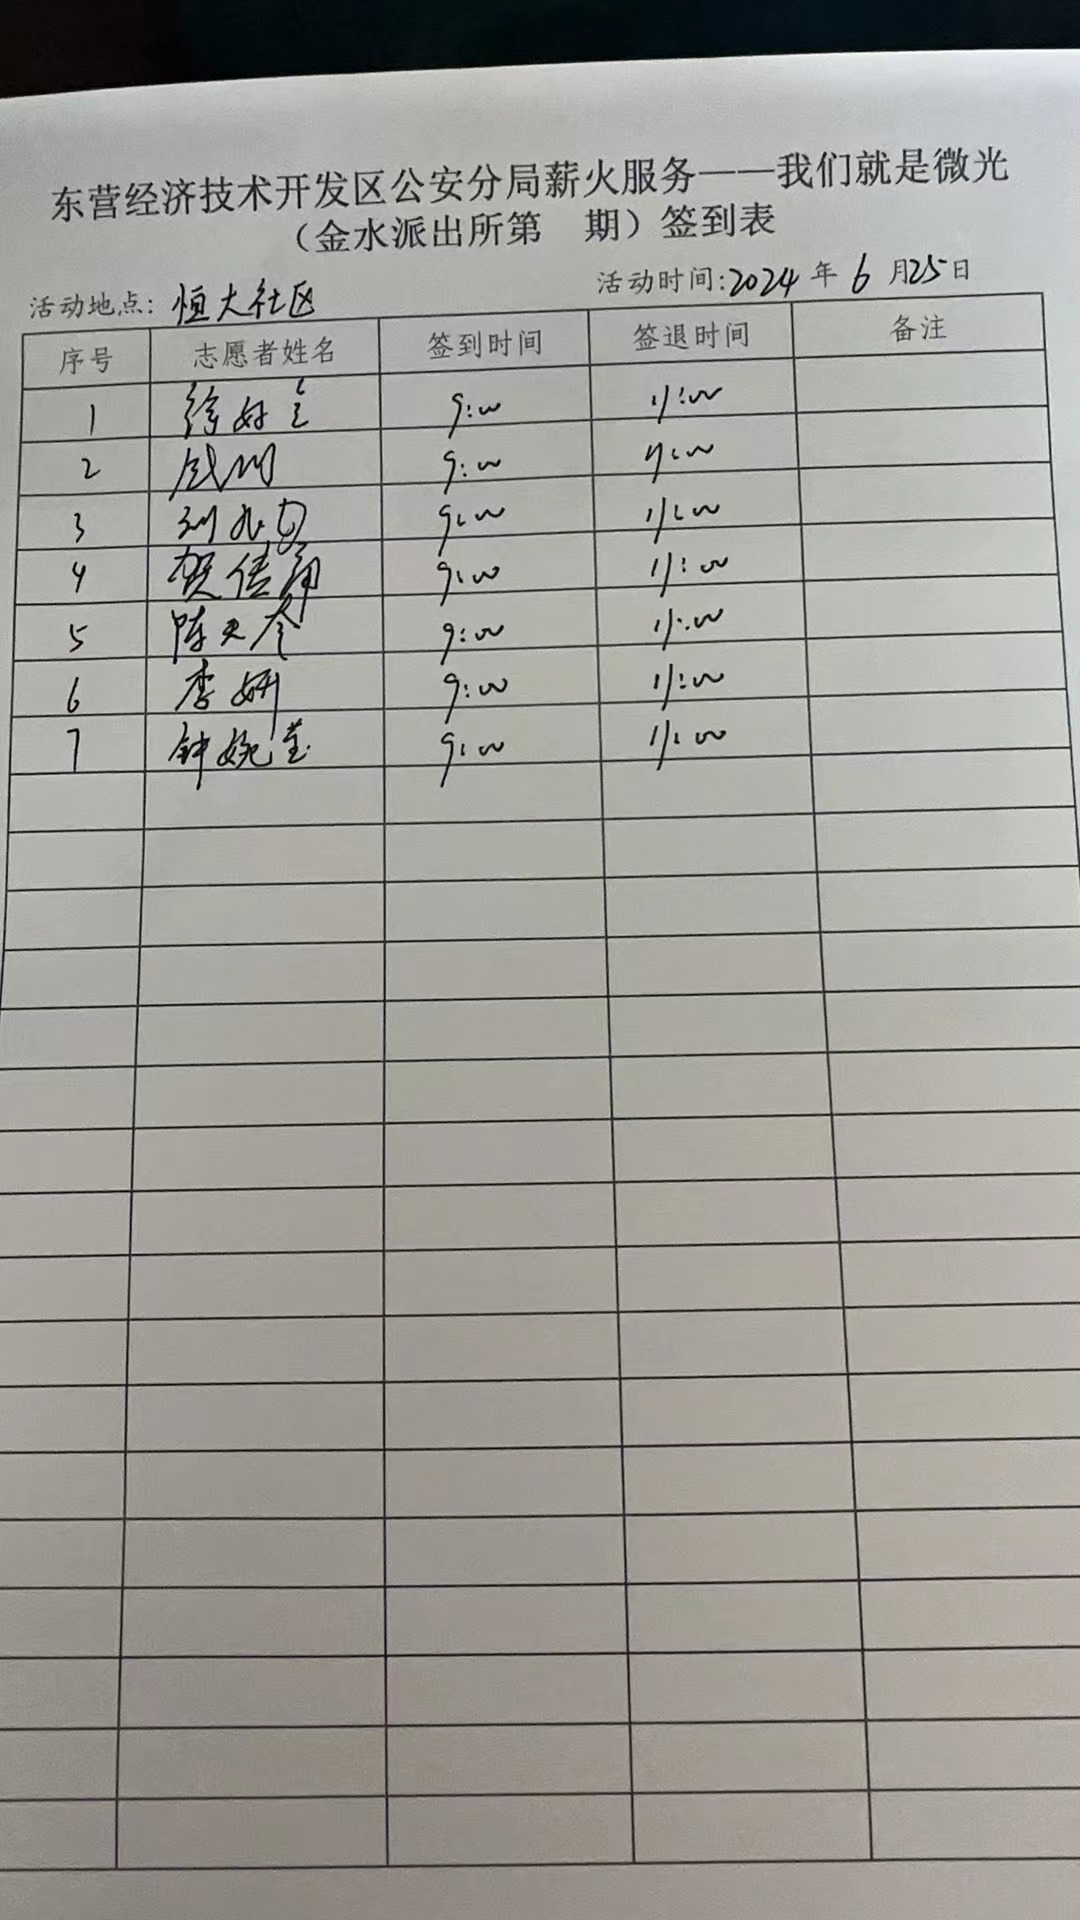 东营经济技术开发区公安分局薪火服务——我们就是微光
（金水派出所第 期）签到表
活动地点: 恒大社区 活动时间:2024年6月25日
序号 志愿者姓名 签到时间 签退时间 备注
1 徐好 9:00 11:00
2 9:00 11:00
3 刘 9:00 11:00
4 贺佳 9:00 11:00
5 陈 9:00 11:00
6 李妍 9:00 11:00
7 钟婉莹 9:00 11:00